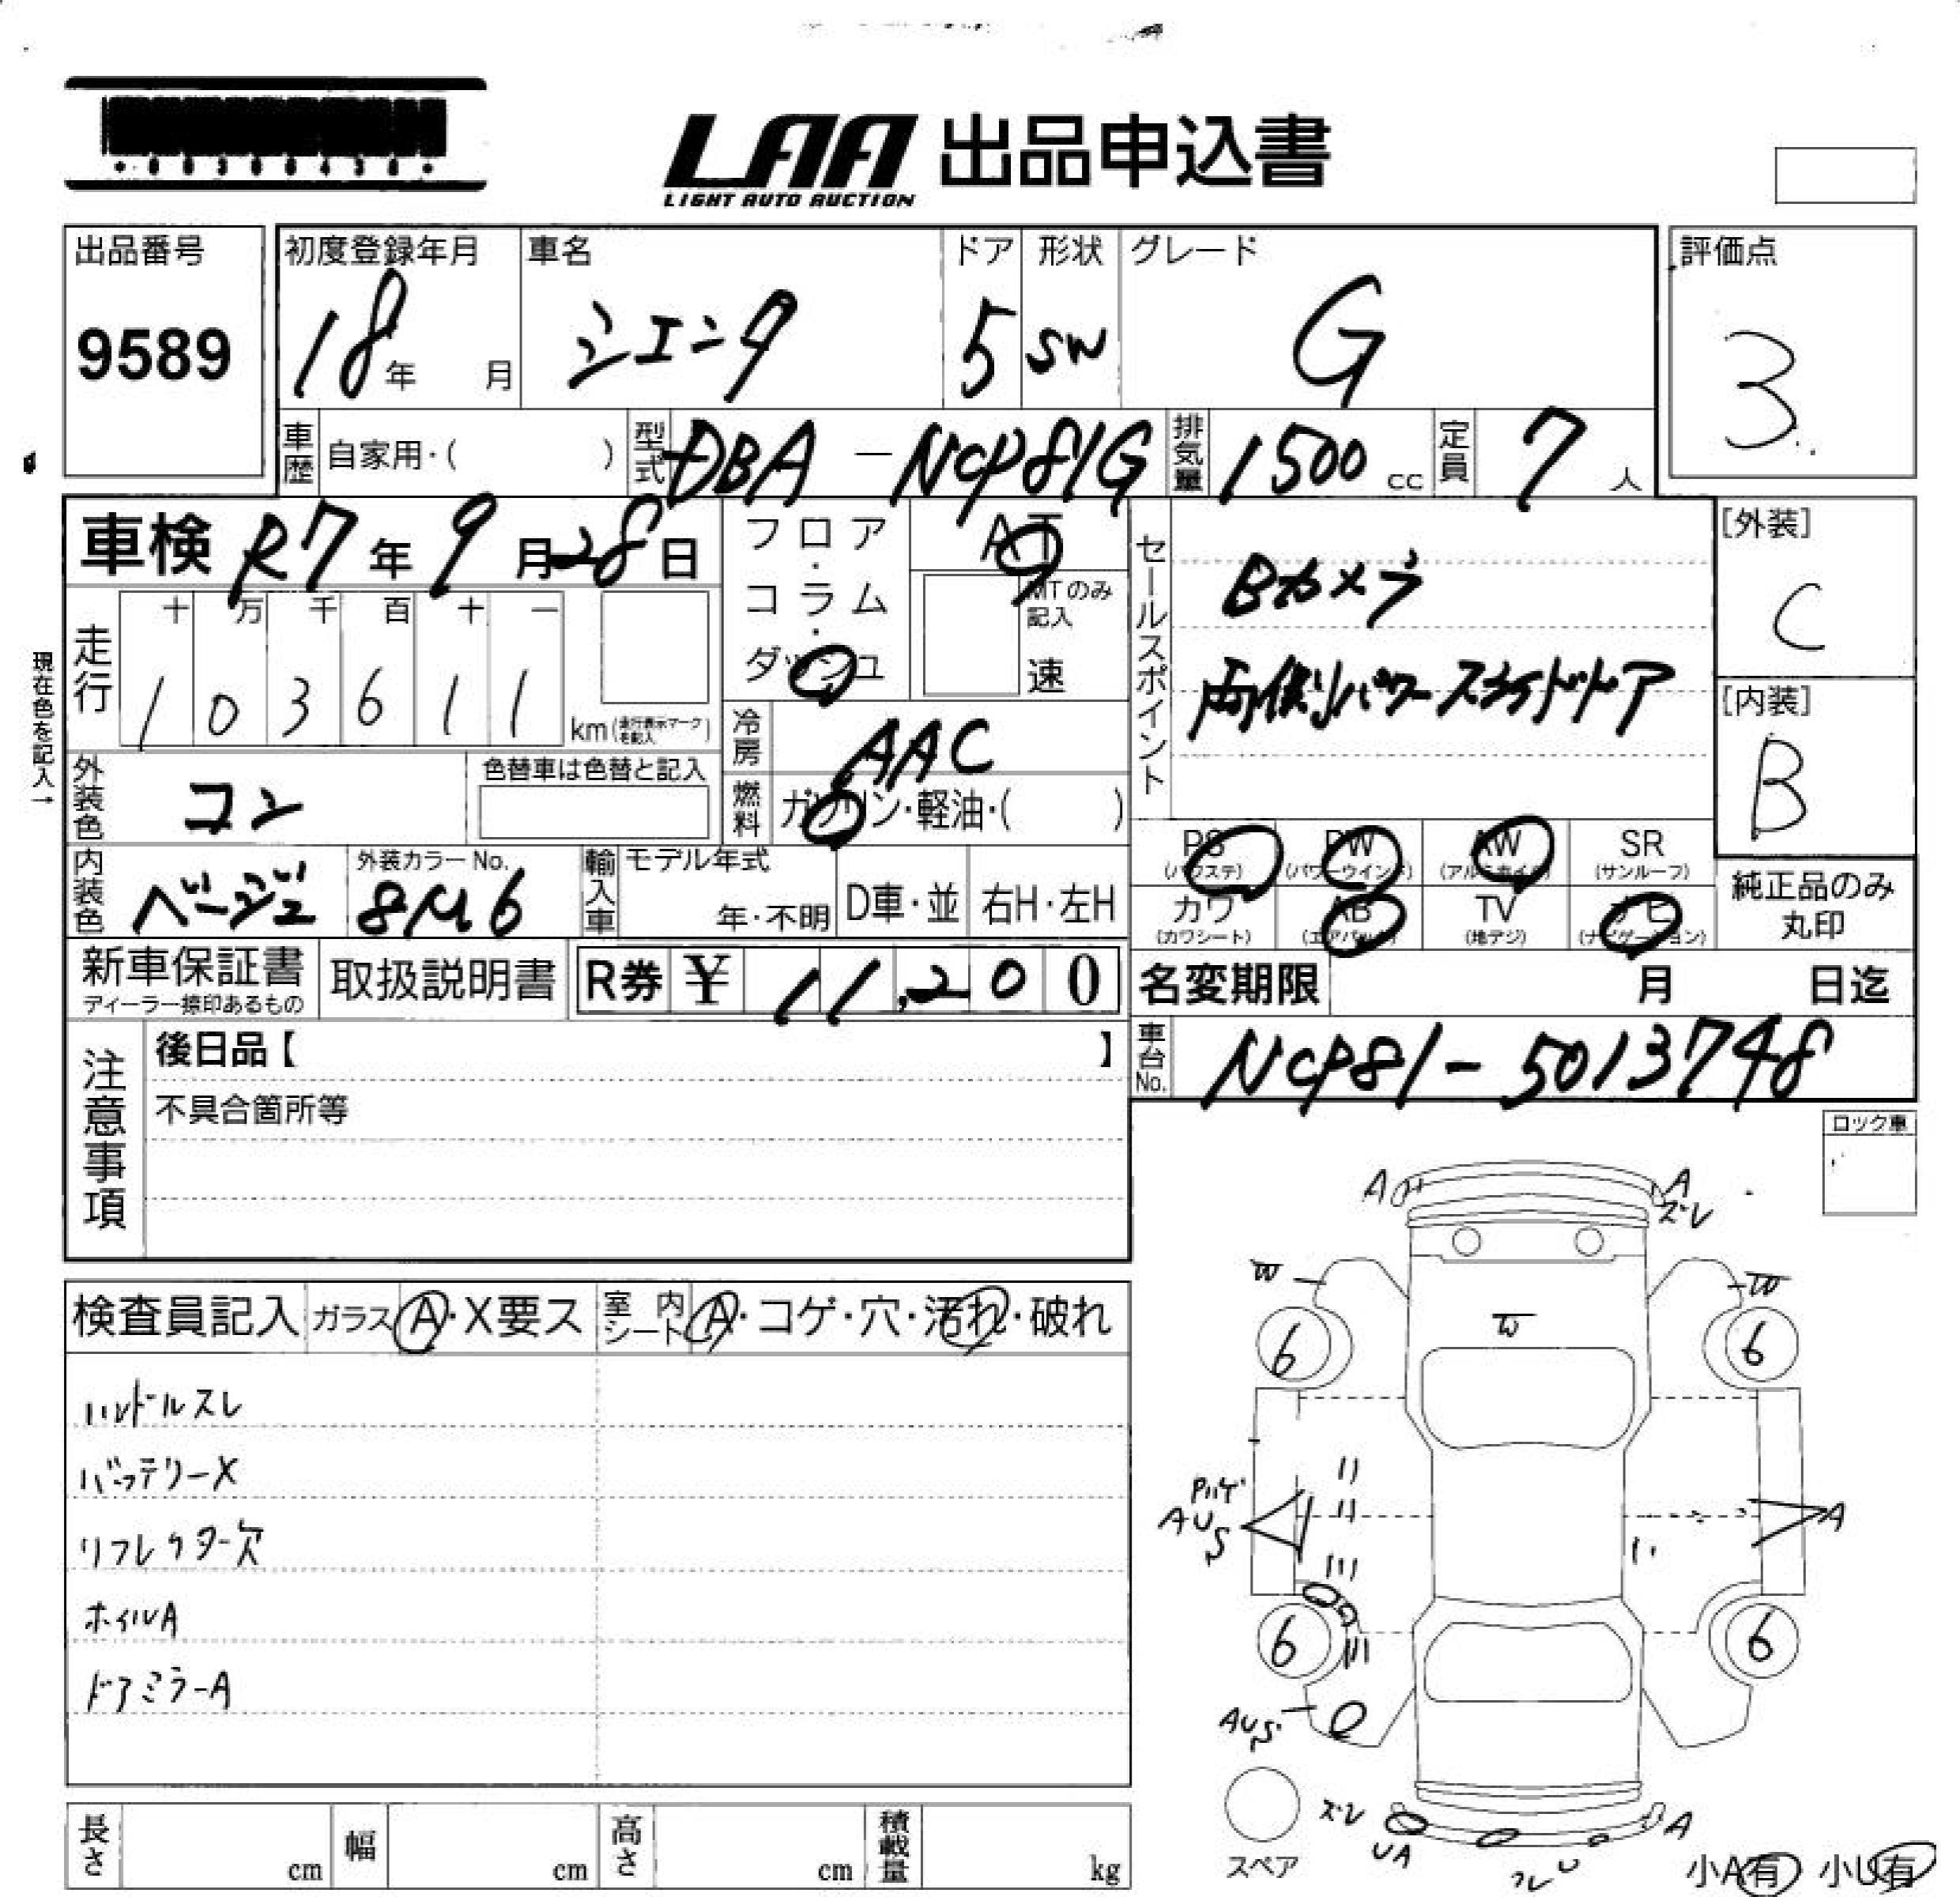 LAA 出品申込書
LIGHT AUTO AUCTION
出品番号
9589
初度登録年月
18年 月
車名
シエンタ
ドア
5
形状
SW
グレード
G
評価点
3
車歴 自家用・( )
型式 DBA-NCP81G
排気量 1500 cc
定員 7 人
車検 R7年9月28日
フロア・コラム・ダッシュ
AT
MTのみ記入
速
セールスポイント
Bカメラ
両側パワースライドドア
[外装]
C
[内装]
B
現在色を記入→
走行
十 万 千 百 十 一
1 0 3 6 1 1
km(走行表示マークを記入)
冷房 AAC
外装色 コン
色替車は色替と記入
燃料 ガソリン・軽油・( )
内装色 ベージュ
外装カラーNo.
8M6
輸入車
モデル年式
年・不明
D車・並
右H・左H
PS (パワステ)
PW (パワーウインド)
AW (アルミホイル)
SR (サンルーフ)
カワ (カワシート)
AB (エアバック)
TV (地デジ)
ナビ (ナビゲーション)
純正品のみ丸印
新車保証書
ディーラー捺印あるもの
取扱説明書
R券 ¥ 11,200
名変期限 月 日迄
車台No. NCP81-5013748
注意事項
後日品【 】
不具合箇所等
ロック車
検査員記入
ガラス A・X要ス
室内シート A・コゲ・穴・汚れ・破れ
ハンドルスレ
バッテリーX
リフレクター欠
ホイルA
ドアミラーA
A
A
ズレ
W
W
W
6
6
Pハゲ
AUS
A
6
6
AUS
ズレ
UA
A
スペア
小A有 小U有
長さ cm
幅 cm
高さ cm
積載量 kg